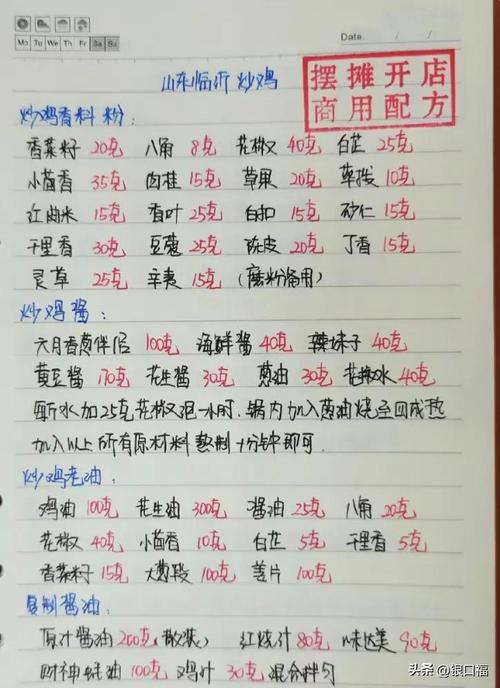 Date / /
Mo Tu We Th Fr Sa Su
摆摊开店
商用配方
山东临沂炒鸡
炒鸡香料粉：
香菜籽 20克 八角 8克 花椒 40克 白芷 25克
小茴香 35克 肉桂 15克 草果 20克 荜拨 10克
红曲米 15克 香叶 25克 白扣 15克 砂仁 15克
千里香 30克 豆蔻 25克 陈皮 20克 丁香 15克
灵草 25克 辛夷 15克 (磨粉备用)
炒鸡酱：
六月香葱伴侣 100克 海鲜酱 40克 辣妹子 40克
黄豆酱 170克 花生酱 30克 葱油 30克 花椒水 40克
每斤水加25克花椒泡一小时，锅内加入葱油烧至四成热
加入以上所有原材料熬制十分钟即可.
炒鸡老油：
鸡油 100克 花生油 300克 酱油 25克 八角 20克
花椒 40克 小茴香 10克 白芷 5克 千里香 5克
香菜籽 15克 大葱段 100克 姜片 100克
复制酱油：
原汁酱油 200克(散装) 红烧汁 80克 味达美 90克
财神蚝油 100克 鸡汁 30克 混合拌匀
头条 @银口福